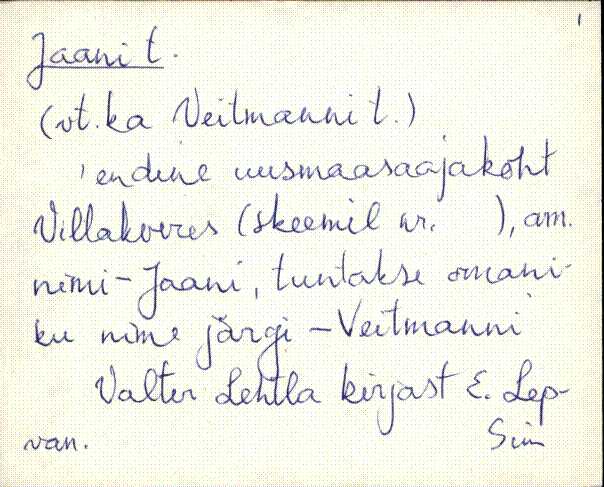 1
Jaani t.
(vt. ka Veitmanni t.)
'endine uusmaasaajakoht
Villakveres (skeemil nr.    ), am.
nimi - Jaani, tuntakse omani-
ku nime järgi - Veitmanni'
Valter Lehtla kirjast E. Lep-
van.
Sim